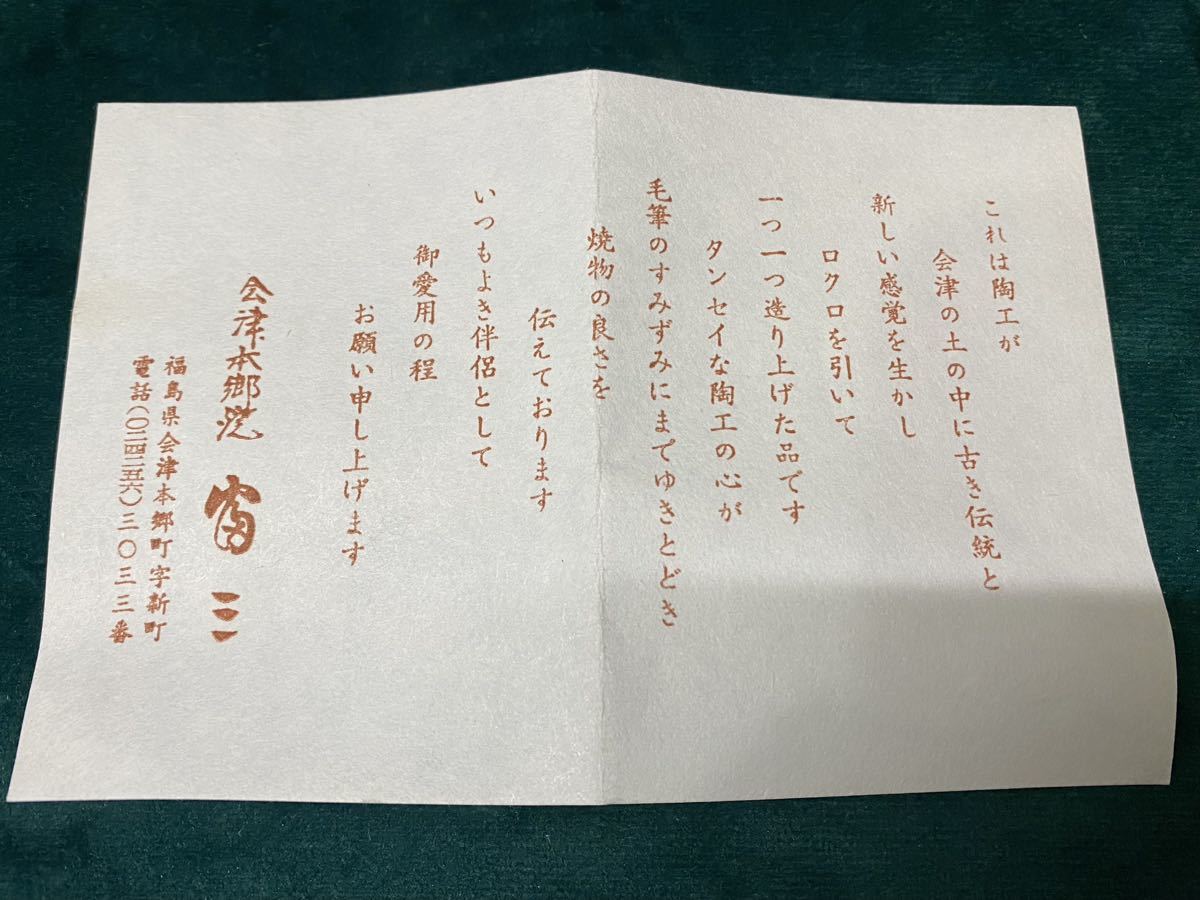 これは陶工が
会津の土の中に古き伝統と
新しい感覚を生かし
ロクロを引いて
一つ一つ造り上げた品です
タンセイな陶工の心が
毛筆のすみずみにまでゆきとどき
焼物の良さを
伝えております
いつもよき伴侶として
御愛用の程
お願い申し上げます
会津本郷焼 富三
福島県会津本郷町字新町
電話(〇二四二五六)三〇三三番